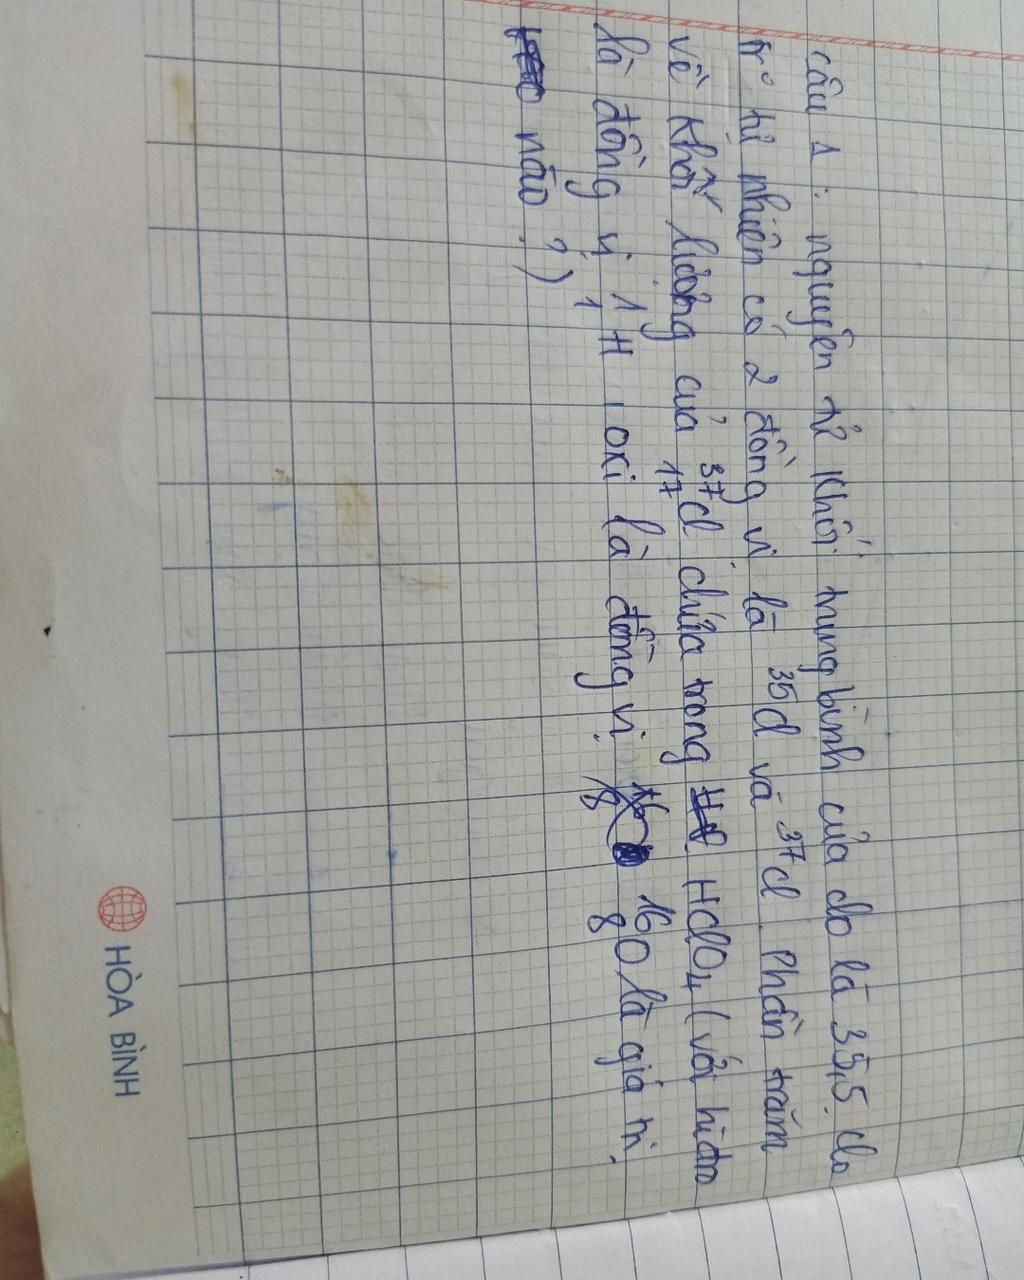 câu 1 : nguyên tử khối trung bình của clo là 35,5. clo
trº tự nhiên có 2 đồng vị là 35Cl và 37Cl. Phần trăm
về khối lượng của 37 17 Cl chứa trong HClO4 (với hiđro
là đồng vị 1 1 H, oxi là đồng vị 16 8 O là giá trị
nào ?)
HÒA BÌNH